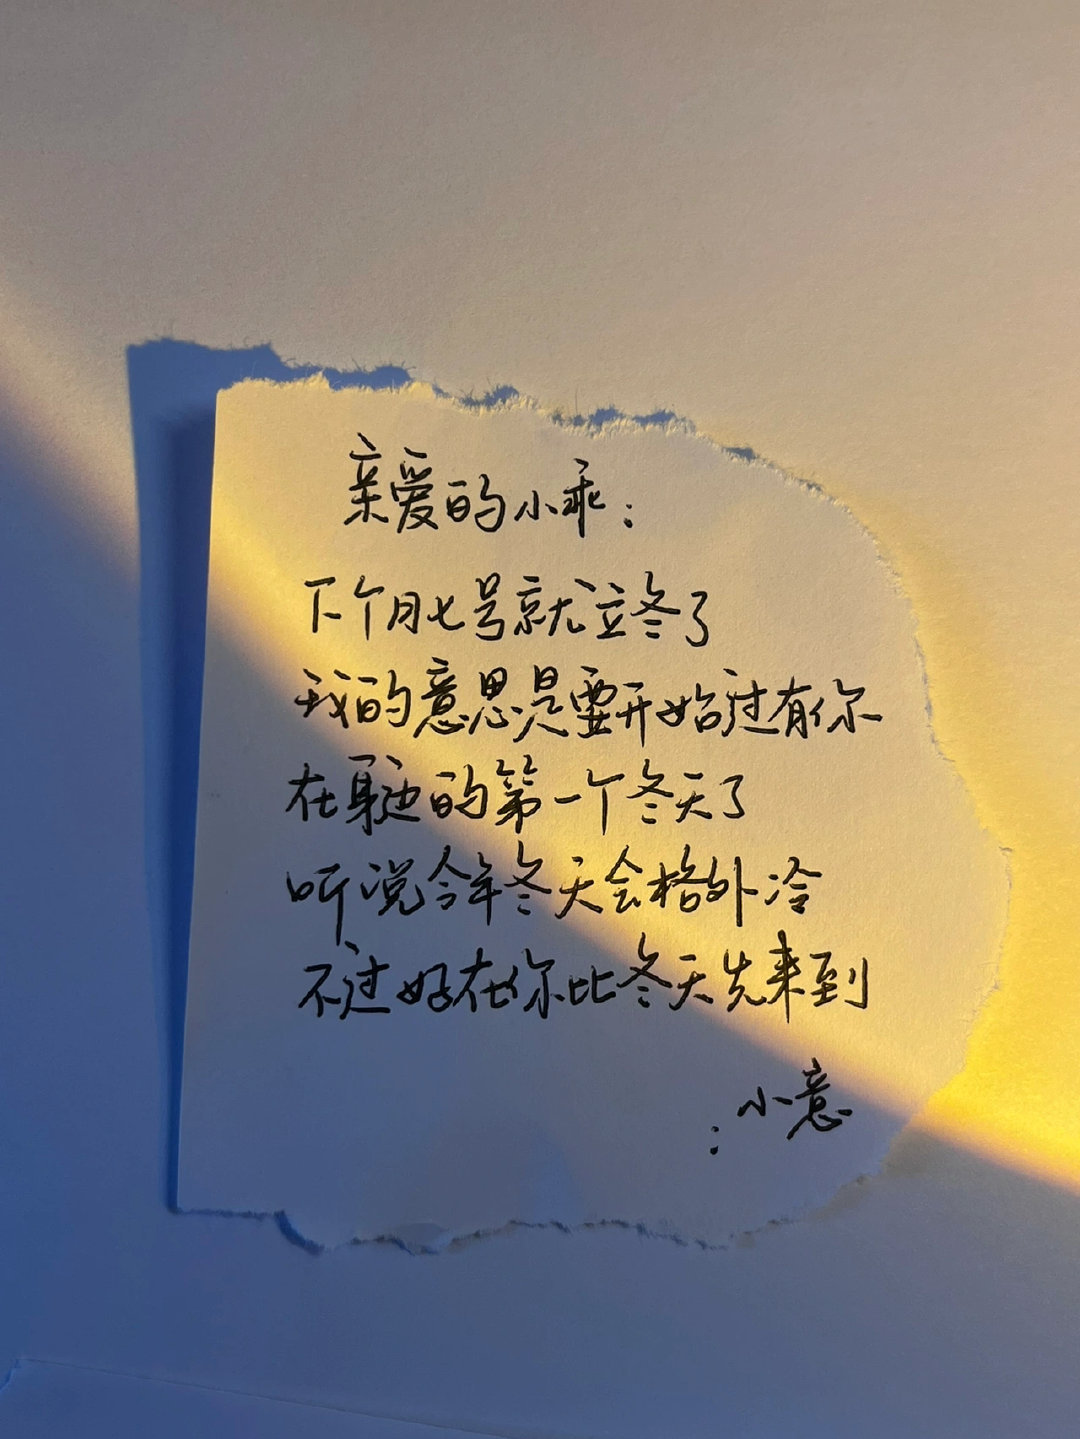 亲爱的小乖：
下个月七号就立冬了
我的意思是要开始过有你
在身边的第一个冬天了
听说今年冬天会格外冷
不过好在你比冬天先来到
：小意